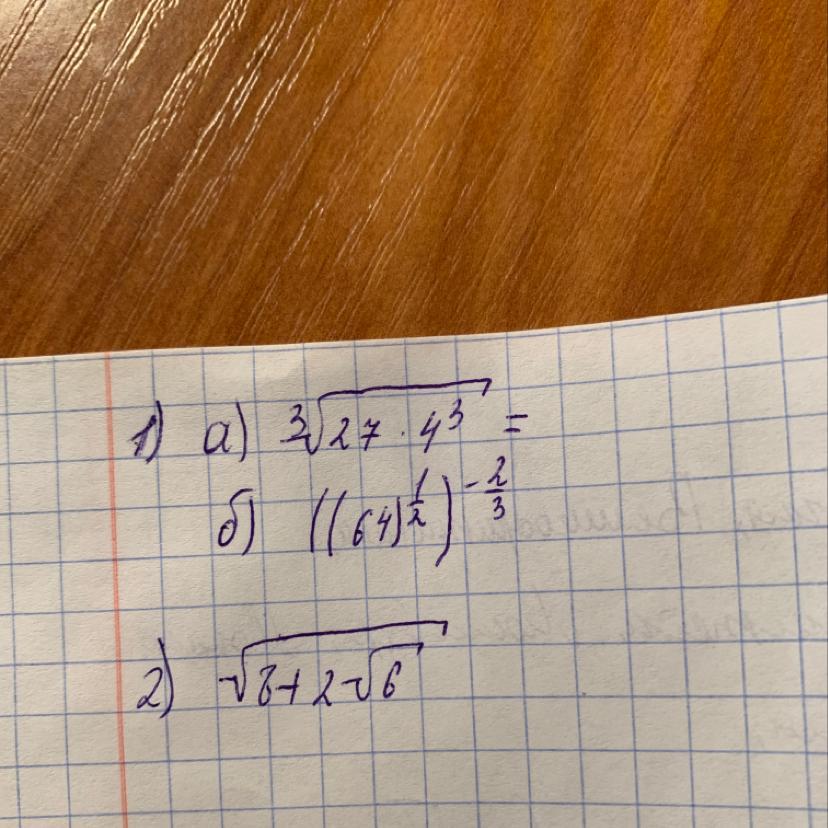 1) а) ∛(27 · 4³) =
б) ((64)^(1/2))^(-2/3)
2) √(8+2√6)